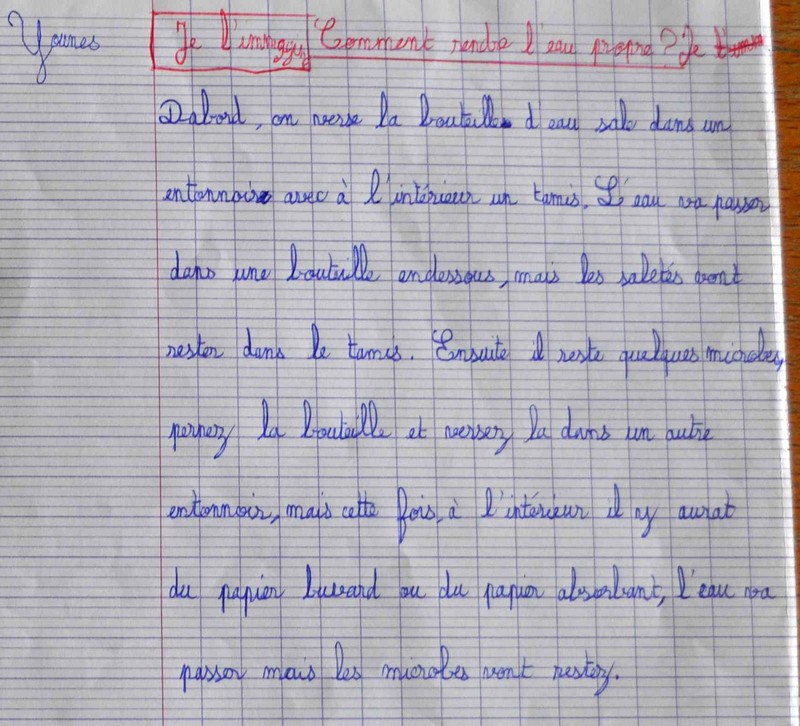 Younes
Je l'immaggine Comment rendre l'eau propre ? Je
Dabord, on verse la bouteille d'eau sale dans un
entonnoire avec à l'intérieur un tamis. L'eau va passer
dans une bouteille endessous, mais les saletés vont
rester dans le tamis. Ensuite il reste quelques microbes,
pernez la bouteille et versez la dans un autre
entonnoir, mais cette fois, à l'intérieur il y aurat
du papier buvard ou du papier absorbant, l'eau va
passer mais les microbes vont restez.